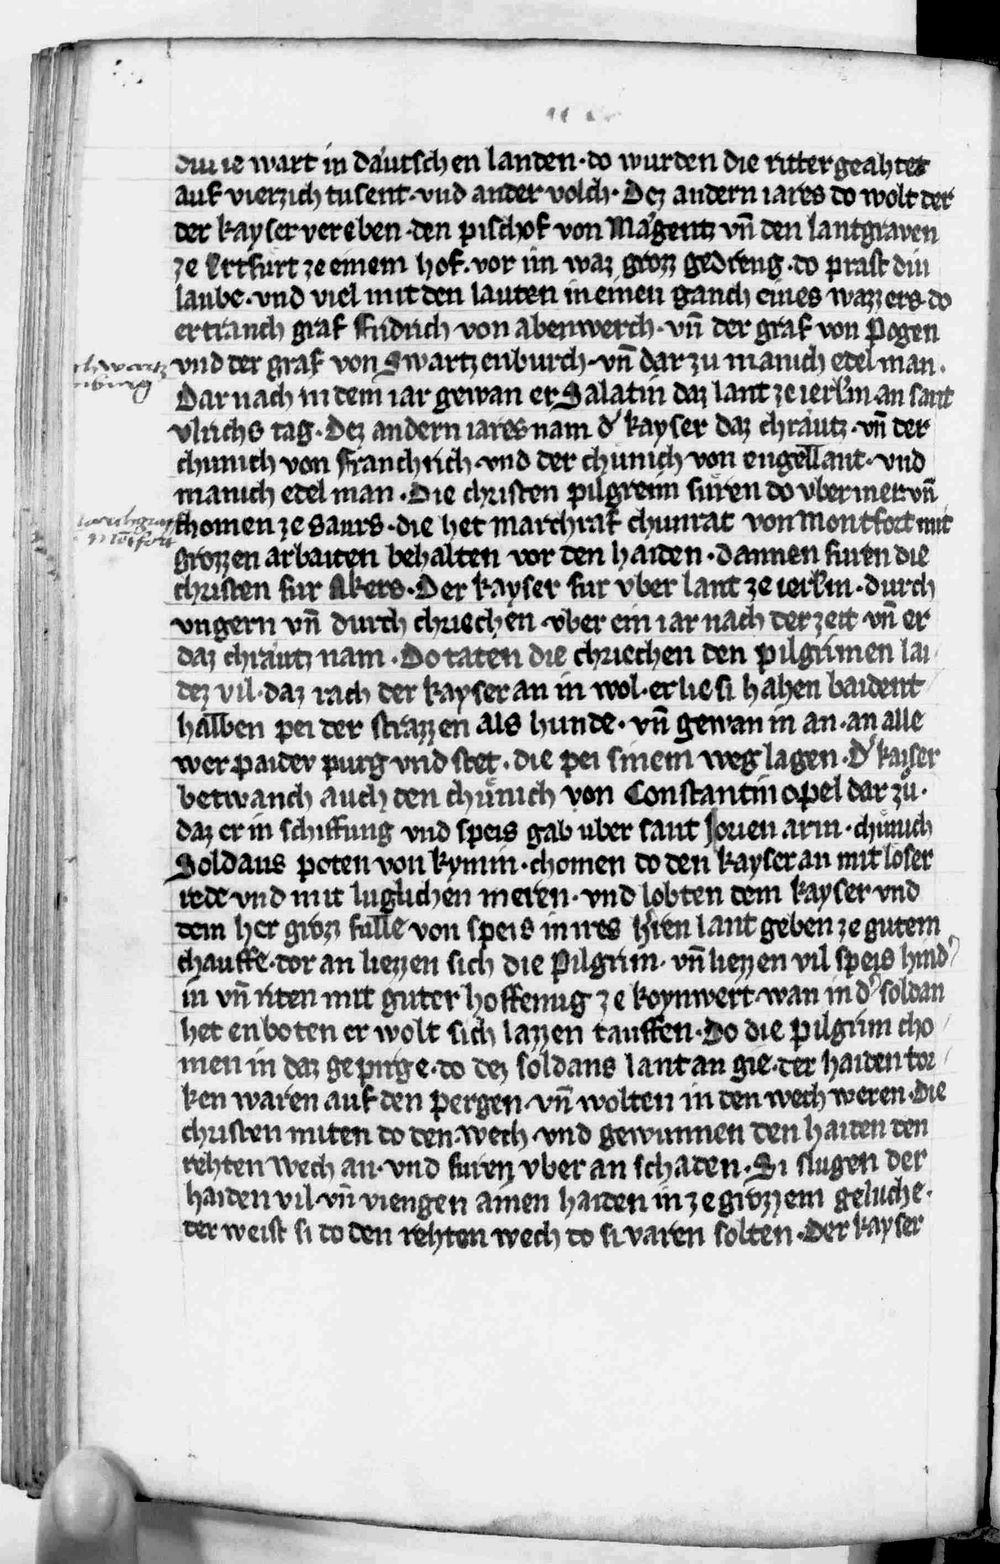 diu ie wart in dautschen landen · do wurden die ritter geahtet
auf vierzich tusent · vnd ander volch · Dez andern iares do wolt der
der kayser vereben · den pischof von Magentz vn̄ den lantgraven
ze Ertfurt ze einem hof · vor im waz grozz gedreng · do prast diu
laube · vnd viel mit den lauten in einen ganch eines wazzers · do
ertranch graf Fridrich von abenwerch · vn̄ der graf von Pogen
vnd der graf von Swartzenburch · vn̄ dar zu manich edel man ·
Dar nach in dem iar gewan er Salatin daz lant ze ierl̄m · an sant
vlrichs tag · Dez andern iares nam d' kayser daz chrautz · vn̄ der
chunich von Franchrich · vnd der chunich von engellant · vnd
manich edel man · Die christen pilgreim fůren do vber mer · vn̄
chomen ze saurs · die het marchraf chunrat von Montfort mit
grozzen arbaiten behalten vor den haiden · dannen furen die
christen fur Akers · Der kayser fur vber lant ze ierl̄m · durch
vngern vn̄ durch chriechen · vber ein iar nach der zeit vn̄ er
daz chrautz nam · Do taten die chriechen den pilgrimen lai
dez vil · daz rach der kayser an in wol · er lie si hahen baident
halben pei der strazzen als hunde · vn̄ gewan in an · an alle
wer paidev purg vnd stet · die pei sinem weg lagen · D' kaiser
betwanch auch den chůnich von Constantinopel dar zů ·
daz er in schiffung vnd speis gab uber sant Jorien arm · chunich
Soldans poten von kymin · chomen do den kayser an mit loser
rede vnd mit luglichen meren · vnd lobten dem kayser vnd
dem her grozz fulle von speis in ires h'ren lant geben ze gutem
chauffe · dor an liezzen sich die Pilgrim · vn̄ liezzen vil speis hind'
in vn̄ riten mit guter hoffenug ze koynwert · wan in d' soldan
het enboten er wolt sich lazzen tauffen · Do die pilgrim cho
men in daz gepirge · do dez soldans lant an gie · der haiden tor
ken waren auf den pergen · vn̄ wolten in den wech weren · Die
christen miten do den wech · vnd gewunnen den haiden den
rehten wech an · vnd furen vber an schaden · Si slugen der
haiden vil · vn̄ viengen ainen haiden in ze grozzem geluche ·
der weist si do den rehten wech do si varen solten · Der kayser